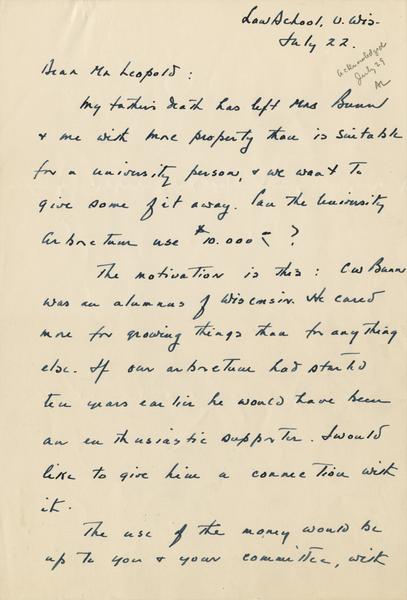 Law School, U. Wis-
July 22.
acknowledged
July 29
AL
Dear Mr Leopold:
My father's death has left Mrs Bunn
& me with more property than is suitable
for a university person, & we want to
give some of it away. Can the University
Arboretum use $10.000 - ?
The motivation is this: CW Bunn
was an alumnus of Wisconsin. He cared
more for growing things than for anything
else. If our arboretum had started
ten years earlier he would have been
an enthusiastic supporter. I would
like to give him a connection with
it.
The use of the money would be
up to you & your committee, with